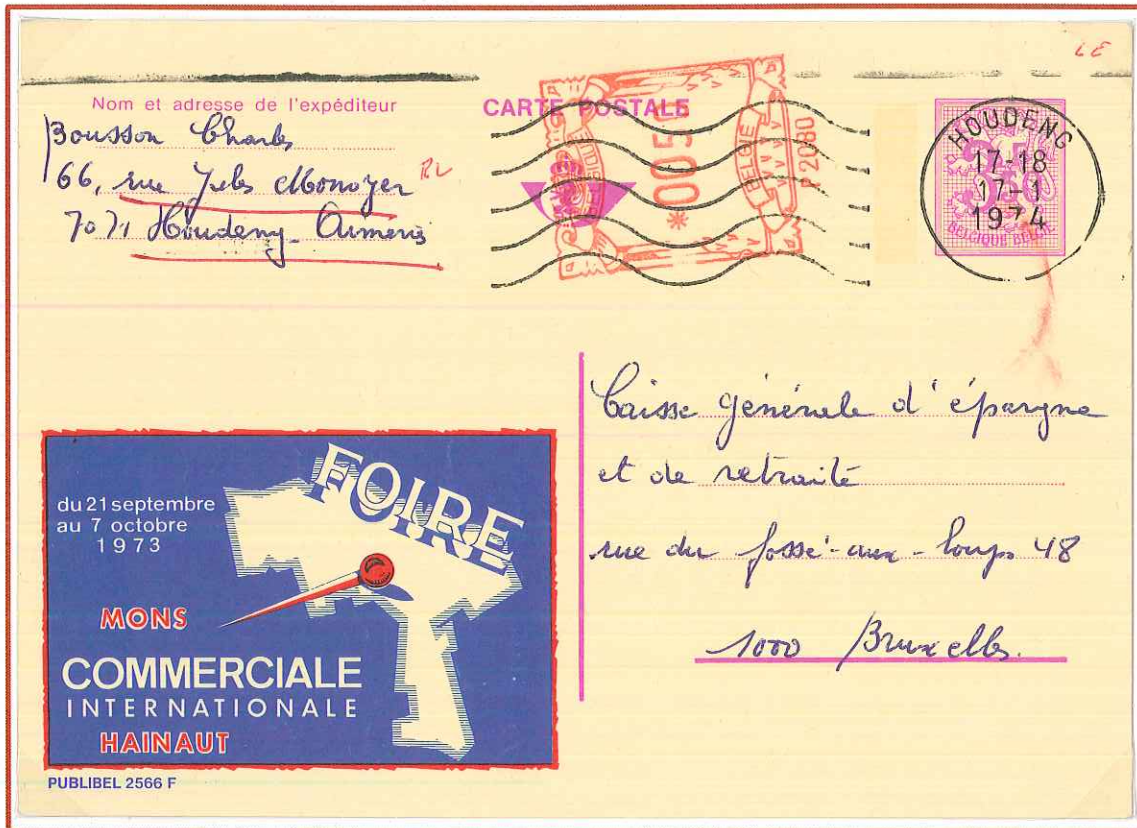 LE
Nom et adresse de l'expéditeur
Bousson Charles
66, rue Jules Monoyer
RL
7071 Houdeng-Aimeries
CARTE POSTALE
BELGIQUE
*0050
BELGIE
P2080
HOUDENG
17-18
17-1
1974
3,50
BELGIQUE BELGIE
Caisse générale d'épargne
et de retraite
rue du fossé-aux-loups 48
1000 Bruxelles.
du 21 septembre
au 7 octobre
1973
FOIRE
MONS
COMMERCIALE
INTERNATIONALE
HAINAUT
PUBLIBEL 2566 F